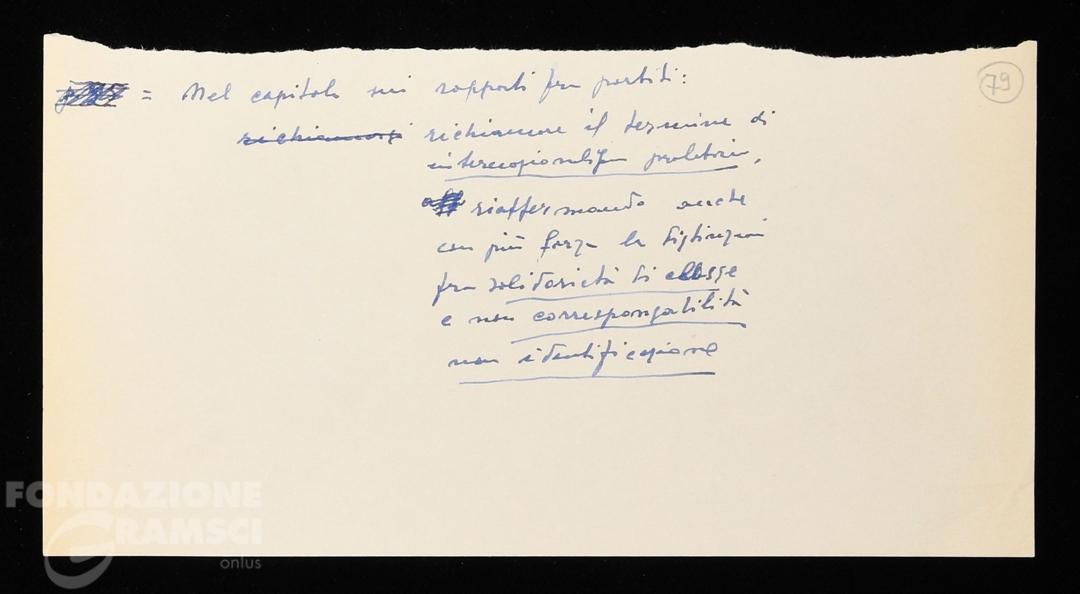 = Nel capitolo sui rapporti fra partiti:
79
richiamarsi richiamare il termine di
internazionalismo proletario,
riaffermando anche
con più forza la distinzione
fra solidarietà di classe
e non corresponsabilità
non identificazione
FONDAZIONE
GRAMSCI
onlus